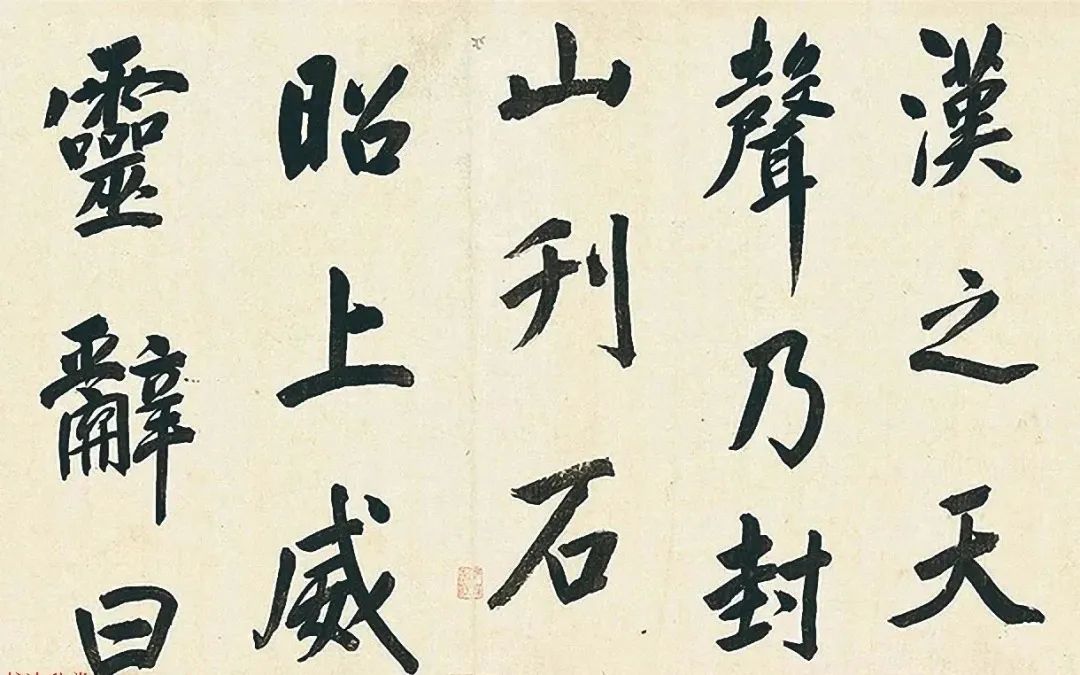 漢之天
聲乃封
山刊石
昭上威
靈辭曰